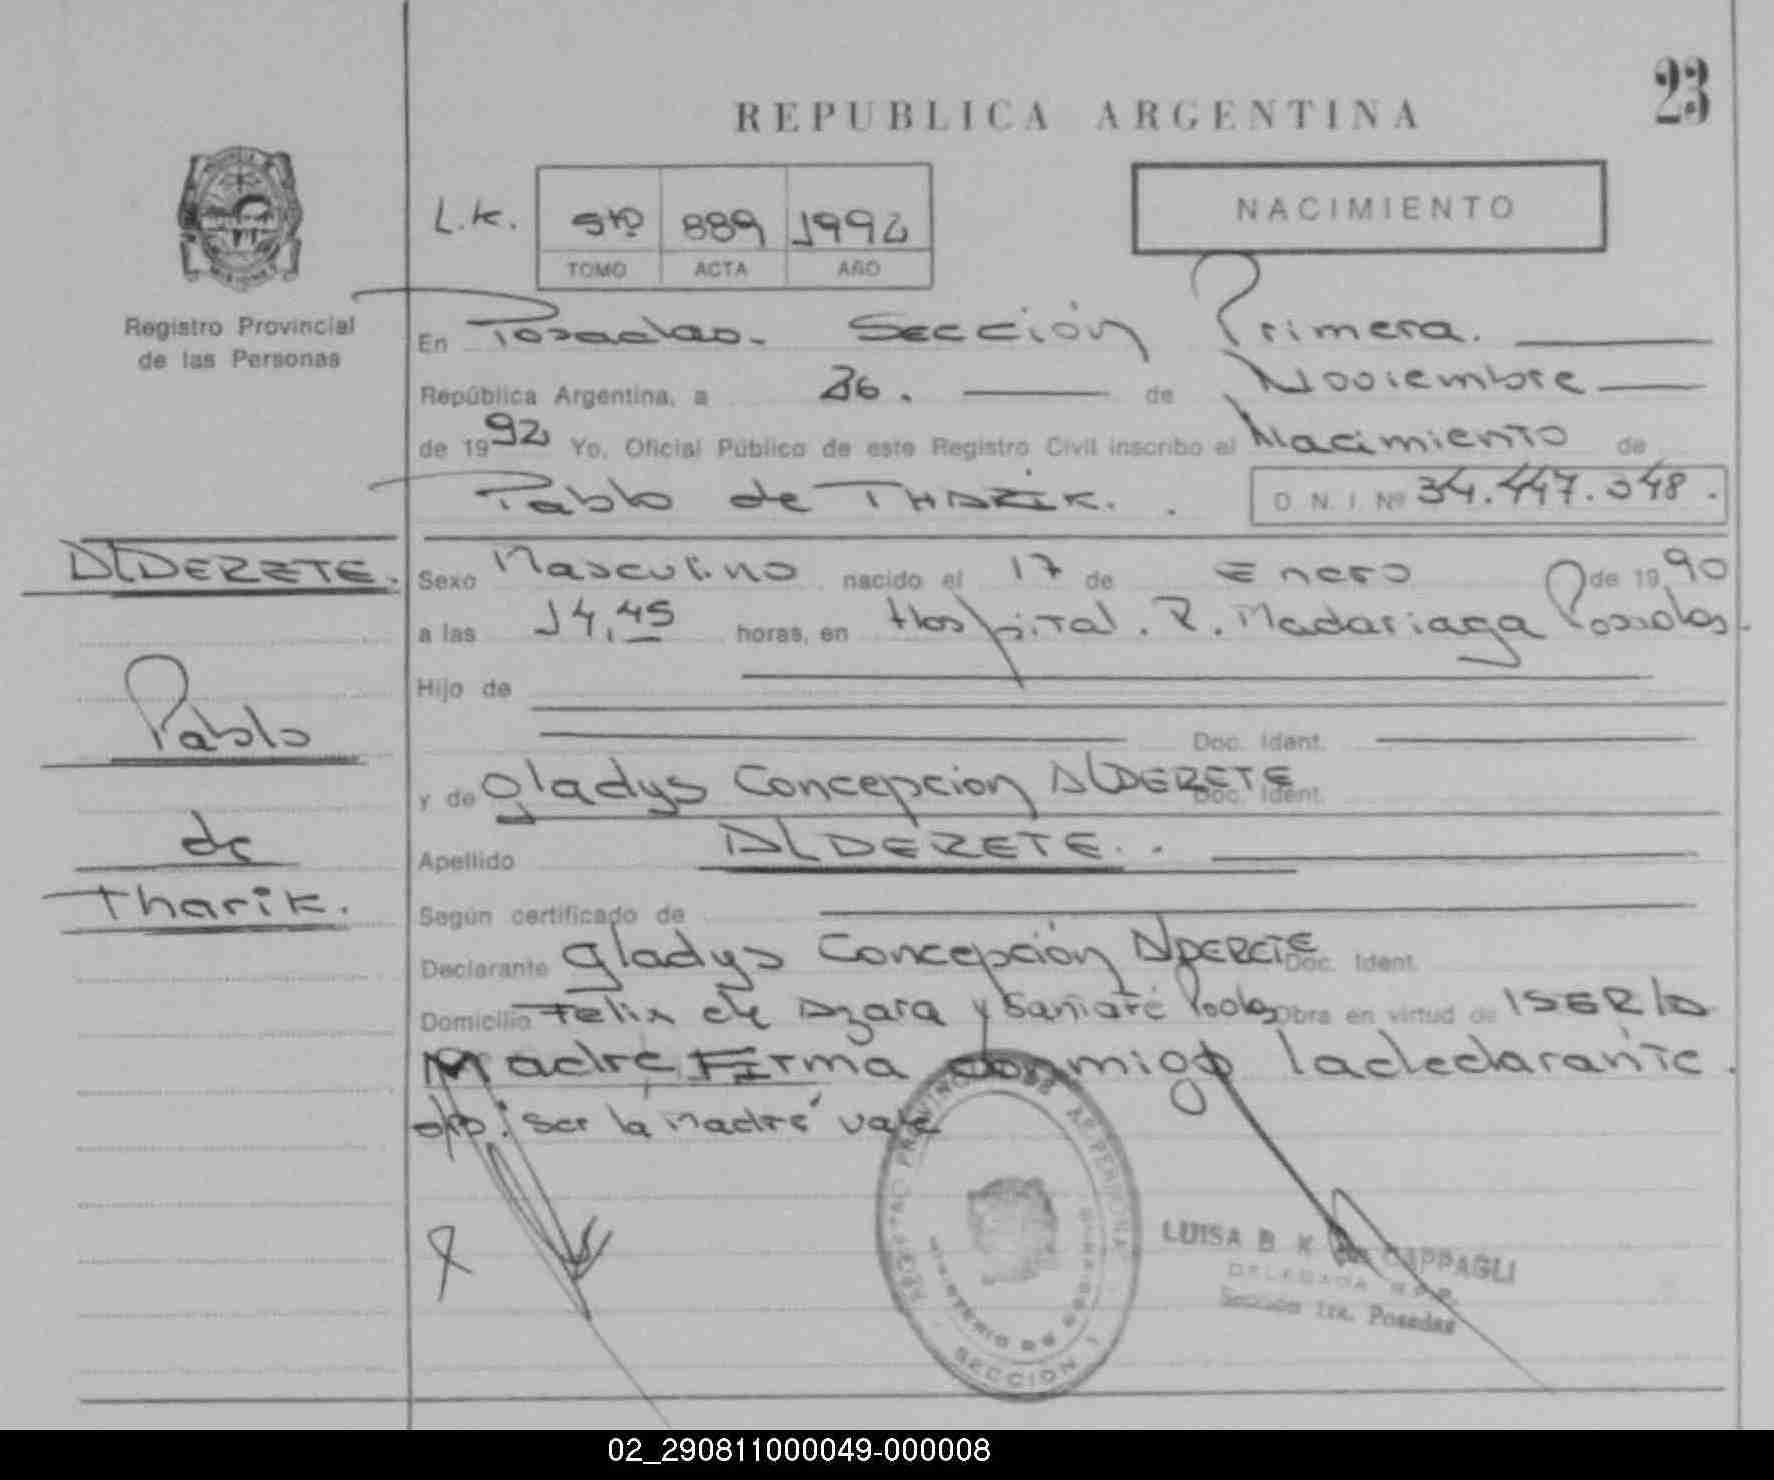 23
REPUBLICA ARGENTINA
NACIMIENTO
L.K. 5to 889 1992
TOMO ACTA AÑO
Registro Provincial
de las Personas
En Posadas. Sección Primera.
República Argentina, a 26. de Noviembre
de 1992 Yo, Oficial Público de este Registro Civil inscribo el Nacimiento de
Pablo de THARIK. D N. I. Nº 34.447.348.
ALDERETE.
Pablo
de
Tharik.
Sexo Masculino nacido el 17 de Enero de 1990
a las 14,45 horas, en Hospital. R. Madariaga Posadas
Hijo de
Doc. Ident.
y de Gladys Concepcion ALDERETE Doc. Ident.
Apellido ALDERETE.
Según certificado de
Declarante Gladys Concepción ALDERETE Doc. Ident.
Domicilio Felix de Azara y Obra en virtud de SER la
Madre Firma conmigo la declarante.
"ser la Madre" vale
REGISTRO PROVINCIAL DE LAS PERSONAS
MINISTERIO DE GOBIERNO
SECCION 1
LUISA B K de CAPPAGLI
DELEGADA R.P.P.
Sección 1ra. Posadas
02_290811000049-000008